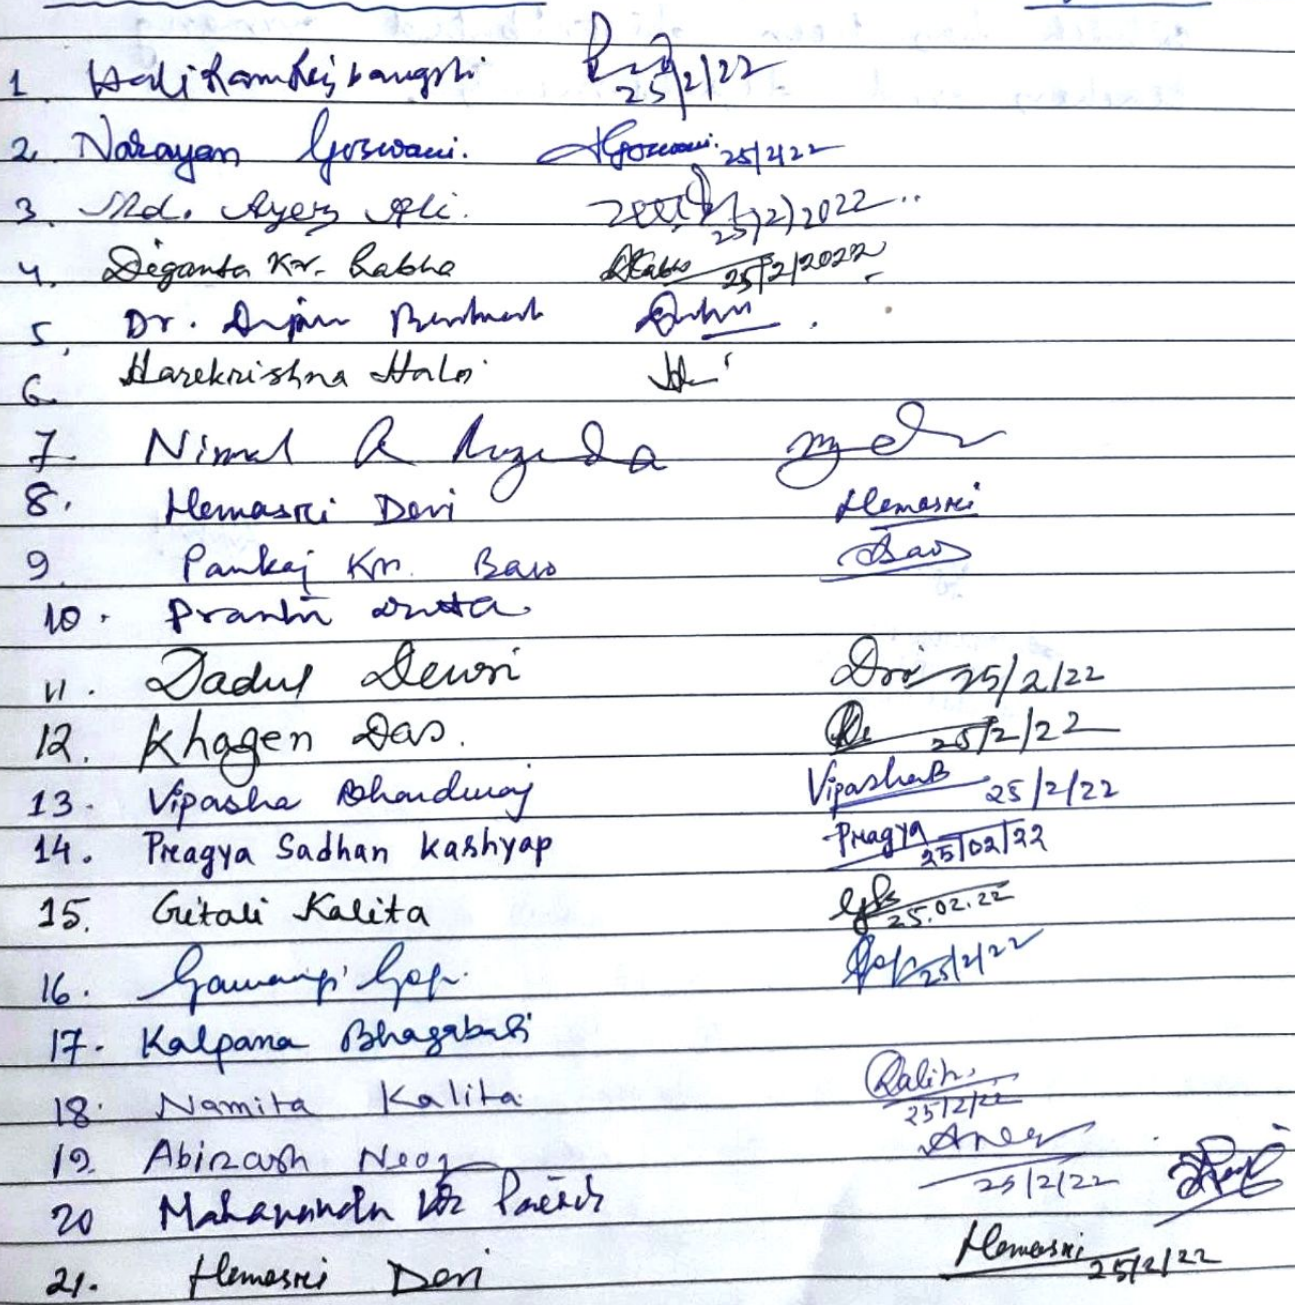 1. Hali Ram Rajbangshi 25/2/22
2. Narayan Goswami. NGoswami. 25/2/22
3. Md. Ayers Ali. 25/2/2022
4. Diganta Kr. Rabha 25/2/2022
5. Dr.
6. Harekrishna Haloi
7. Nirmal
8. Hemasri Devi Hemasri
9. Pankaj Kr.
10. Dutta
11. Dadul Dewri 25/2/22
12. Khagen Das. 25/2/22
13. Vipasha Bhardwaj VipashaB 25/2/22
14. Pragya Sadhan Kashyap Pragya 25/02/22
15. Gitali Kalita 25.02.22
16. Gop. Gop 25/2/22
17. Kalpana Bhagabati
18. Namita Kalita Kalita 25/2/22
19. Abinash Neog ANeog 25/2/22
20 Mahananda
21. Hemasri Devi Hemasri 25/2/22